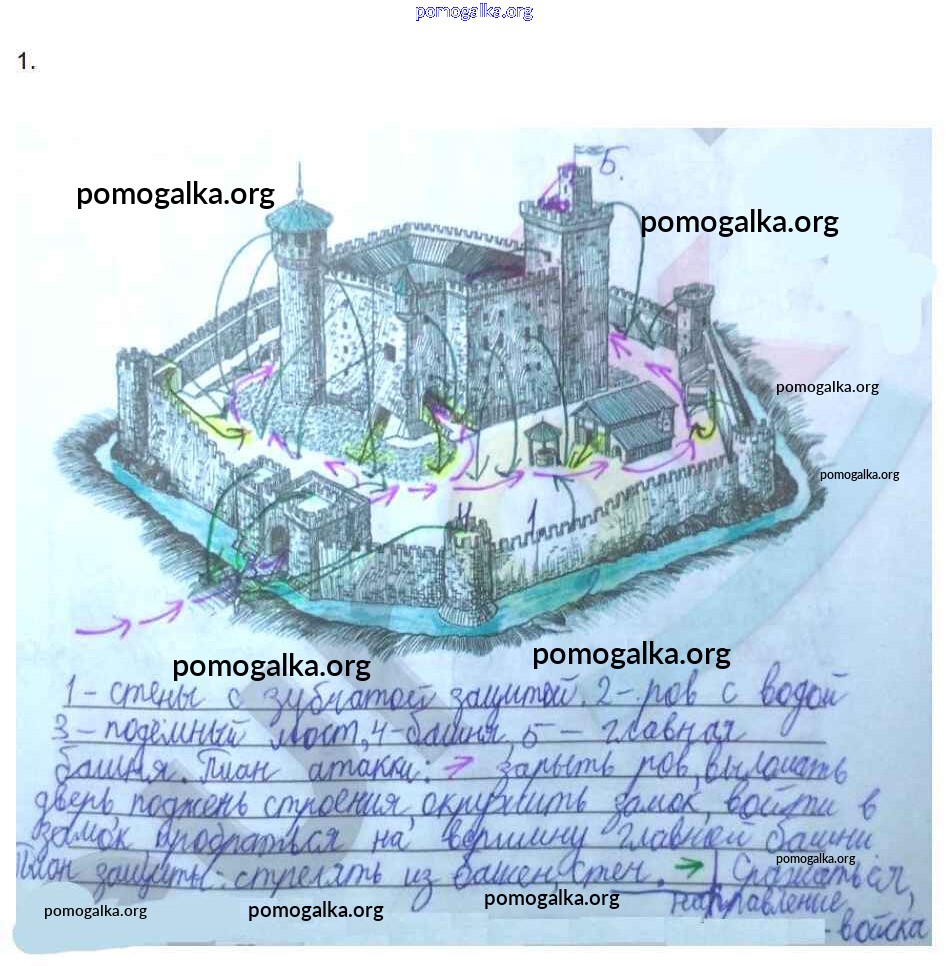 pomogalka.org
1.
5.
pomogalka.org
pomogalka.org
pomogalka.org
pomogalka.org
4
1
3
pomogalka.org
pomogalka.org
1 – стены с зубчатой защитой. 2 – ров с водой
3 – подёмный мост, 4 – башня, 5 – главная
башня. План атакки: → зарыть ров, выломать
дверь, поджечь строения, окружить замок, войти в
замок пробраться на вершину главной башни
pomogalka.org
План защиты: стрелять из башен, стен. → Сражаться,
pomogalka.org
pomogalka.org
pomogalka.org
направление
– войска